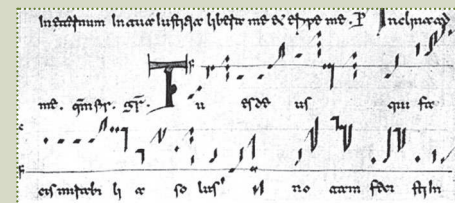 In eternum In tua iustitia libera me & eripe me . Inclina ad
me. Tu es de us qui fa
cis mirabi li a so lus no tam feci sti In